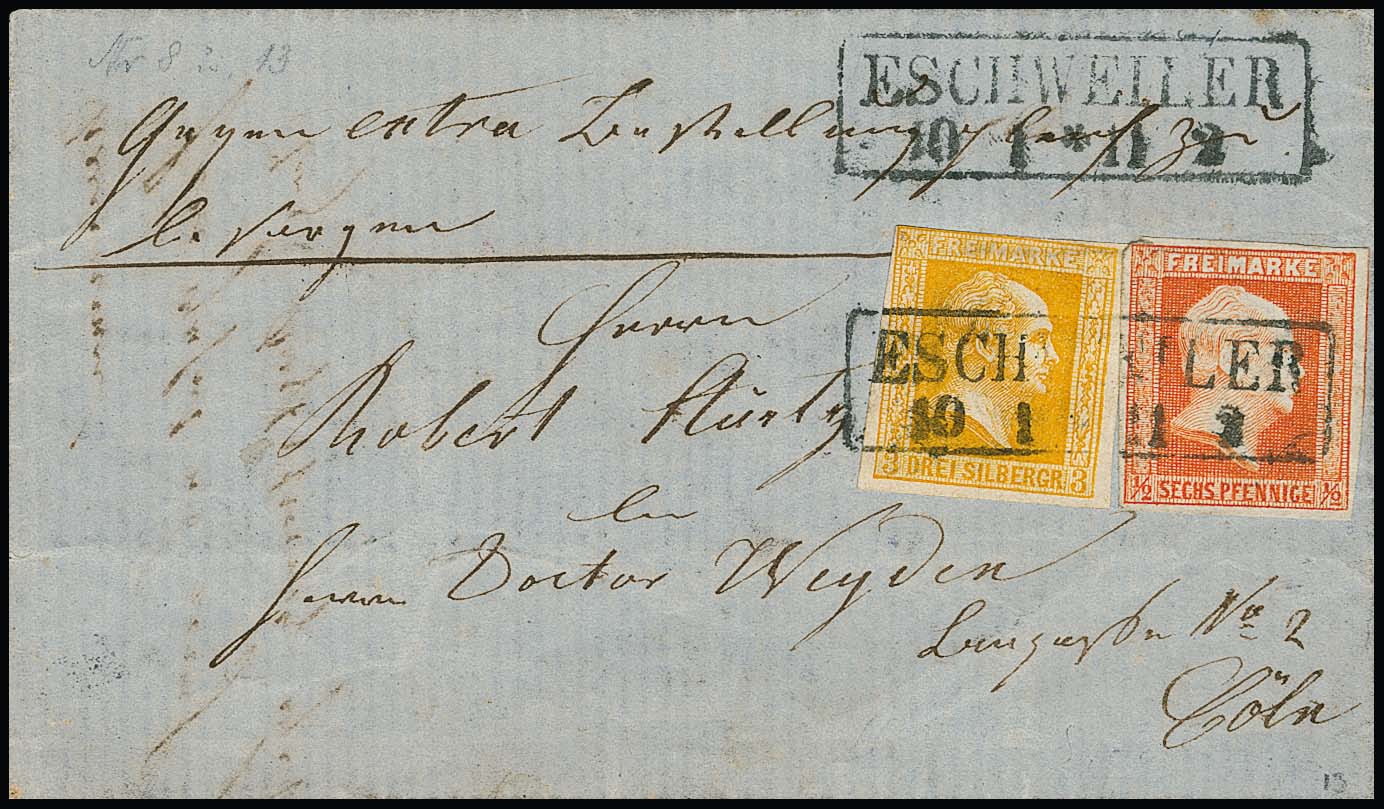 Nr 8 u. 13
ESCHWEILER
10 1 * 11 2
Gegen extra Bestellung gleich zu
besorgen
FREIMARKE
3 DREI SILBERGR. 3
FREIMARKE
1/2 SECHS PFENNIGE 1/2
ESCH WEILER
10 1 11 2
Herrn
Robert
bei
Herrn Doctor Weyden
Langgasse No 2
Cöln
13